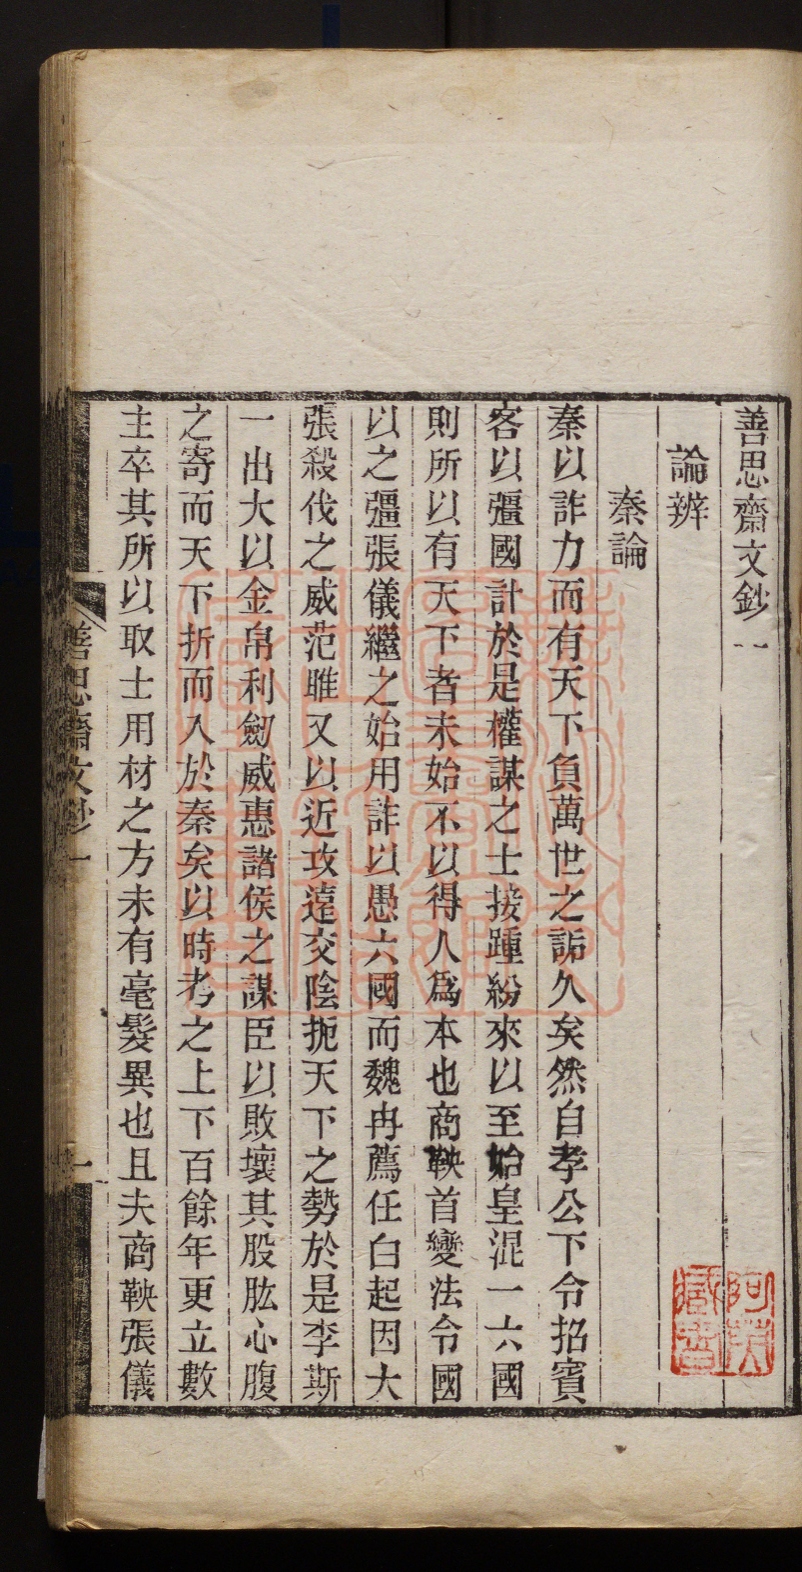 善思齋文鈔一
論辨
秦論
秦以詐力而有天下負萬世之詬久矣然自孝公下令招賓
客以彊國計於是權謀之士接踵紛來以至始皇混一六國
則所以有天下者未始不以得人爲本也商鞅首變法令國
以之彊張儀繼之始用詐以愚六國而魏冉薦任白起因大
張殺伐之威范雎又以近攻遠交陰扼天下之勢於是李斯
一出大以金帛利劒威惠諸侯之謀臣以敗壞其股肱心腹
之寄而天下折而入於秦矣以時考之上下百餘年更立數
主卒其所以取士用材之方未有毫髮異也且夫商鞅張儀
善思齋文鈔一
一